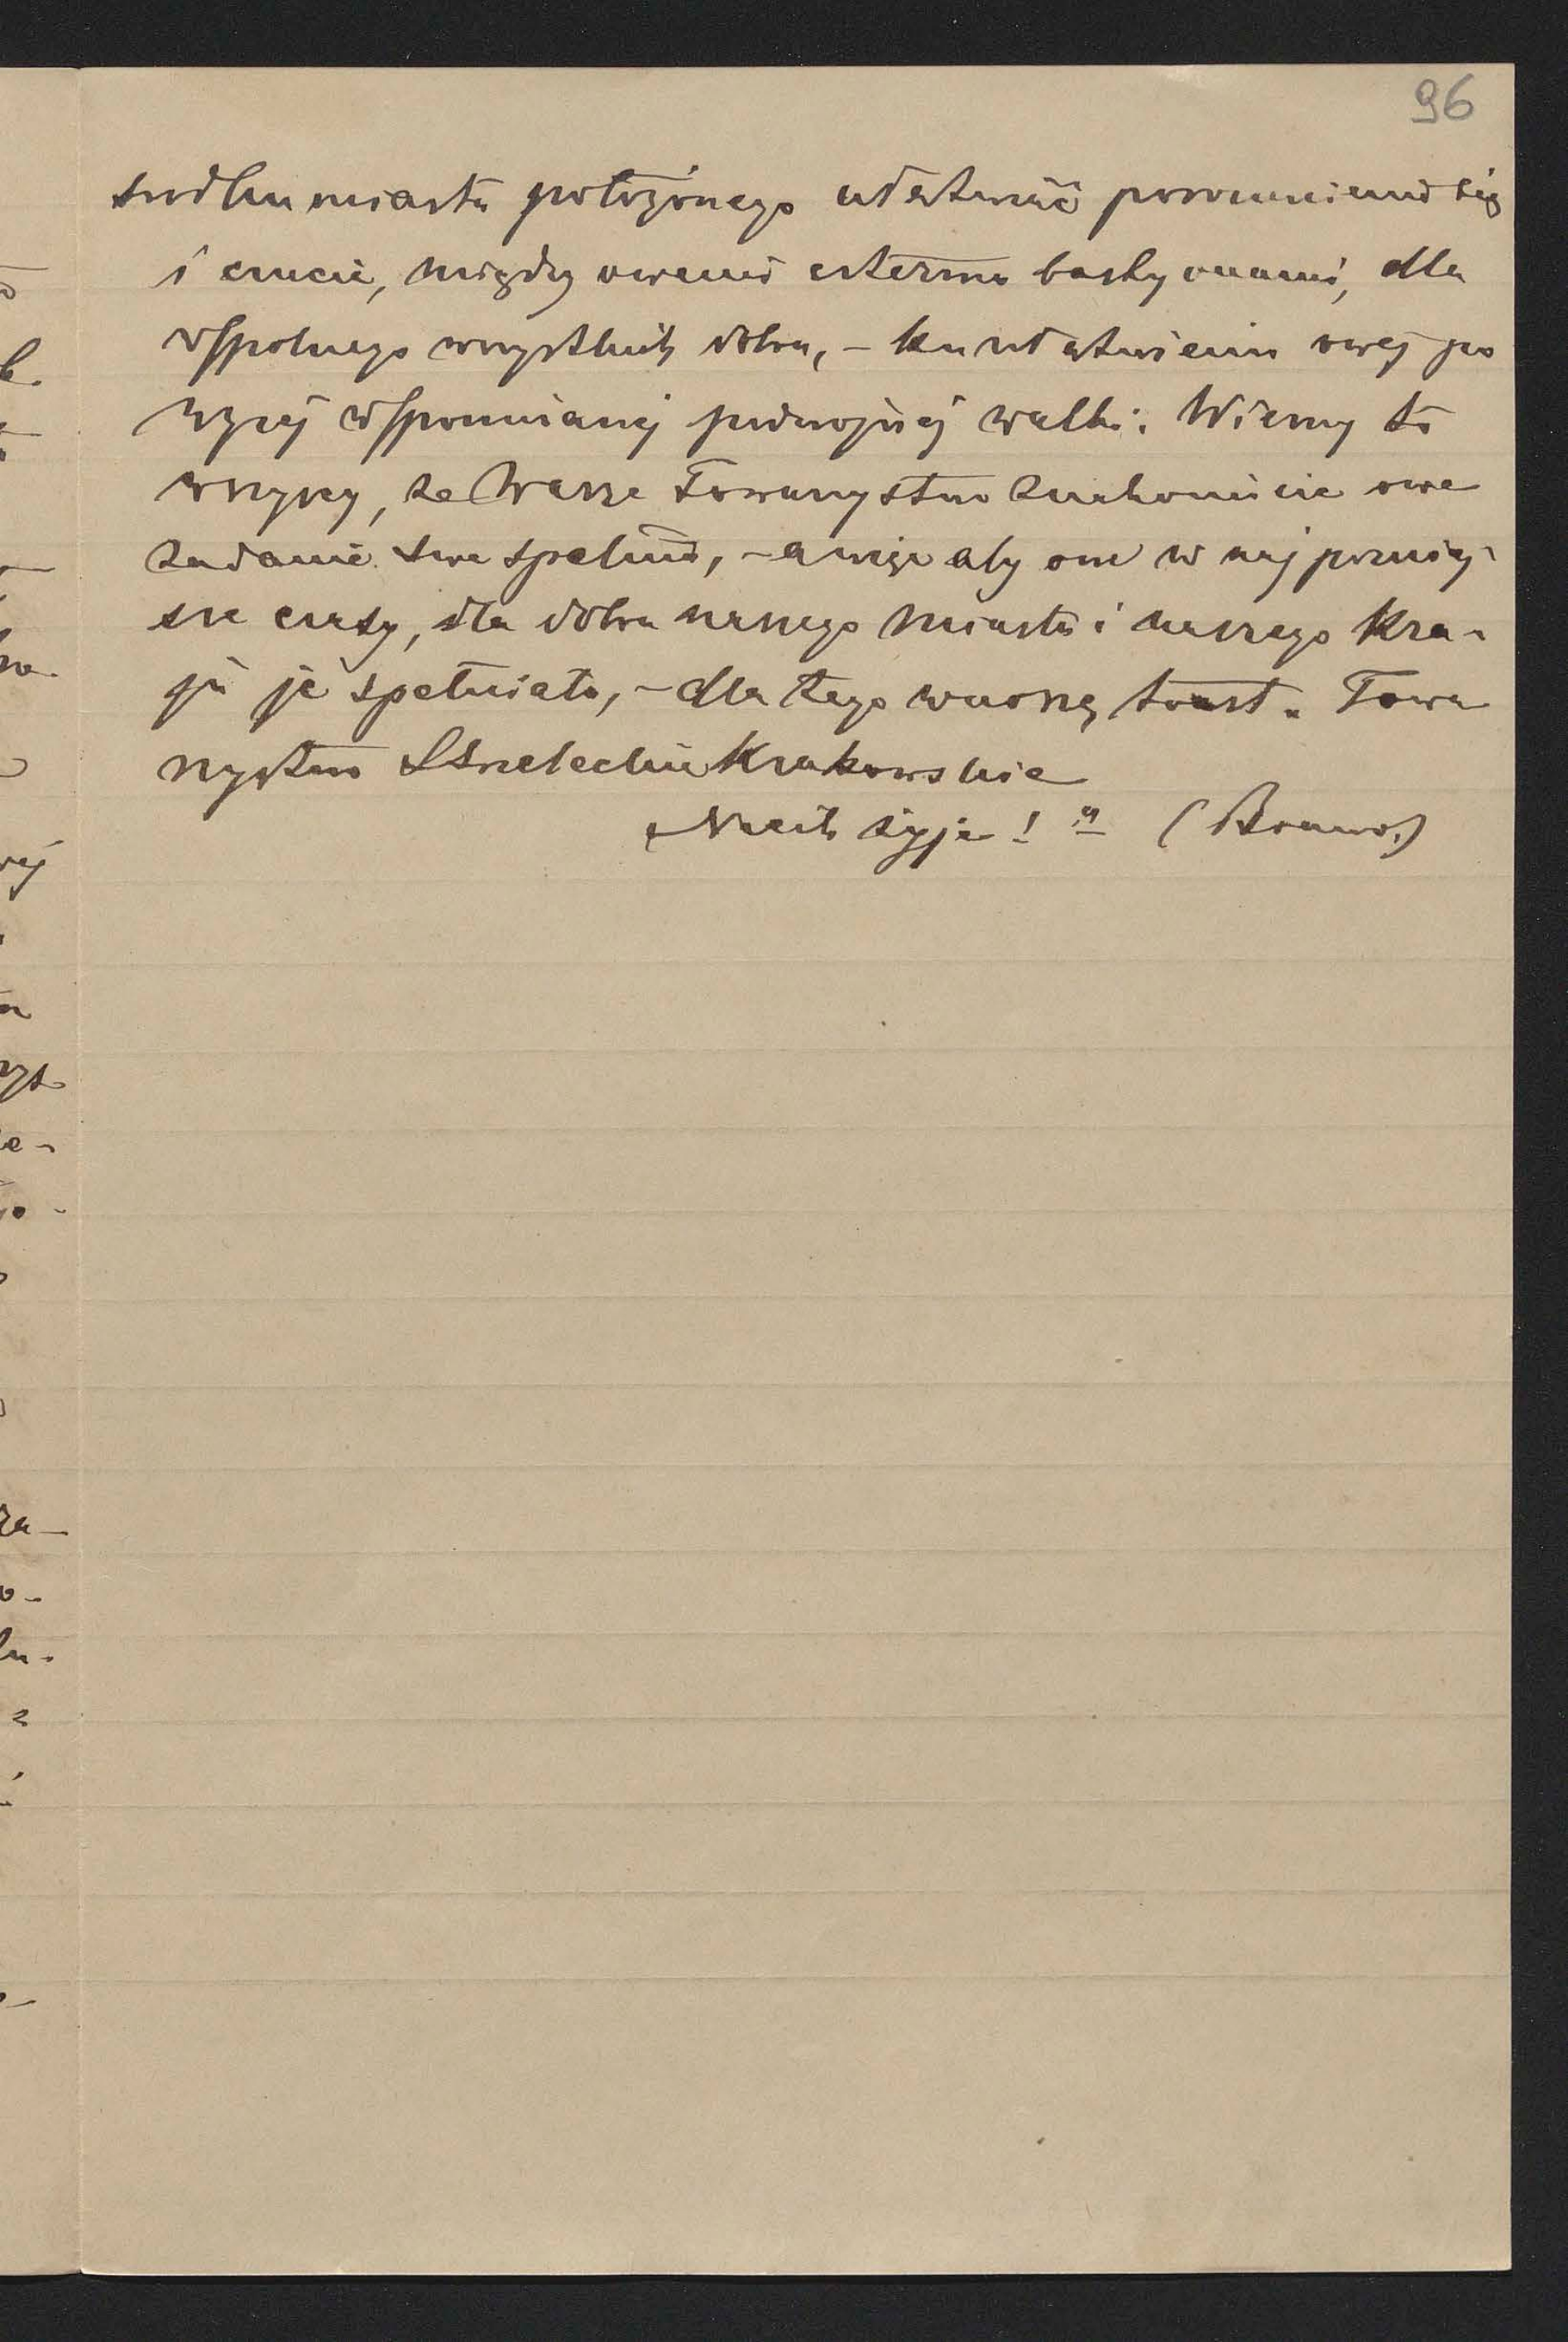 96
środku miasta położonego ułatwić porozumienie się
i czucie, między owemi czterma bastyonami, dla
wspolnego wszystkich dobra, – ku ułatwieniu owej po
wyżej wspomnianej podwojnej walki. Wiemy to
wszyscy, że Wasze Towarzystwo znakomicie owe
zadanie swe spełnia, – a więc aby one w najpozniej-
sze czasy, dla dobra naszego miasta i naszego Kra-
ju je spełniało, – dla tego wnoszę toast. Towa
rzystwo Strzeleckie Krakowskie
Niech żyje!" (Brawo.)